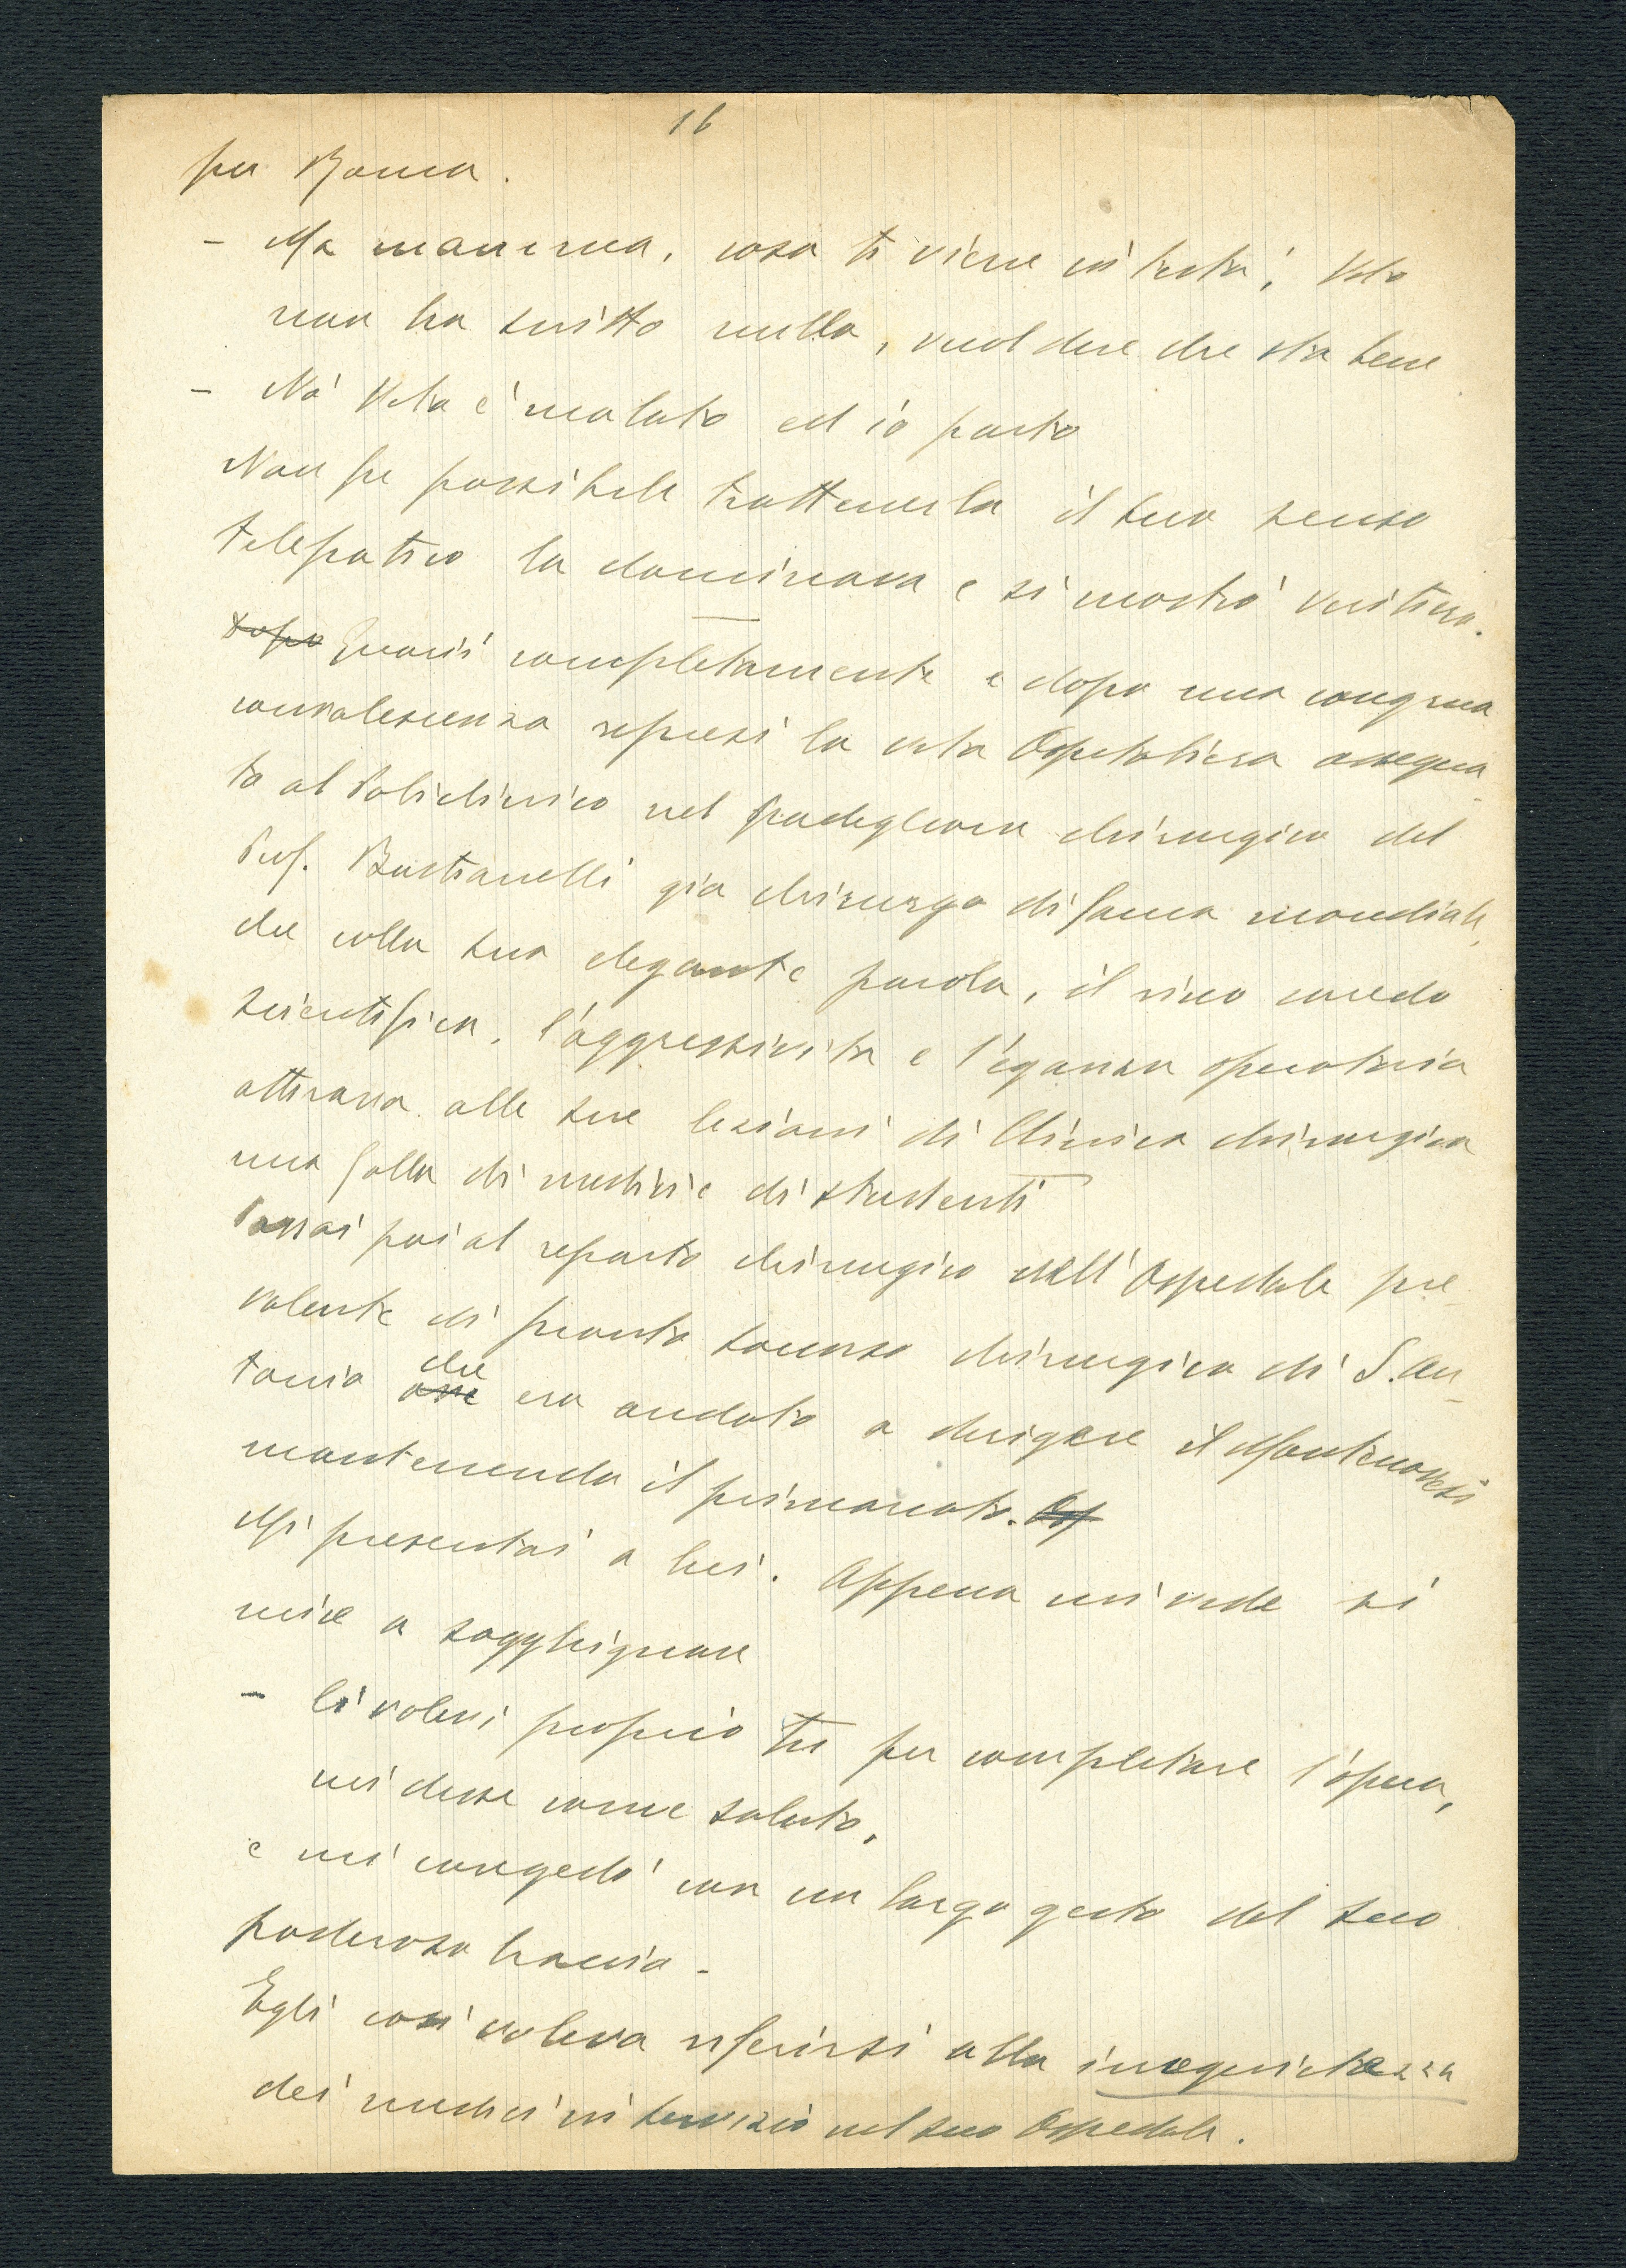 16
per Roma.
- Ma mamma, cosa ti viene in testa; Vito
non ha scritto nulla, vuol dire che sta bene
- No Vito è malato ed io parto
Non fu possibile trattenerla il suo senso
telepatico la dominava e si mostrò veritiero.
dopo Guarii completamente e dopo una congrua
convalescenza ripresi la vita Ospitaliera assegna
to al Policlinico nel padiglione chirurgico del
Prof. Bastianelli già chirurgo di fama mondiale,
che colla sua elegante parola, il ricco corredo
scientifico, l'aggressività e l'eganza operatoria
attirava alle sue lezioni di Clinica chirurgica
una folla di medici e di studenti
Passai poi al reparto chirurgico dell'Ospedale pre
valente di pronto soccorso chirurgico di S. An-
tonio che era andato a dirigere il Montenovesi
mantenendo il primariato. Osp
Mi presentai a lui. Appena mi vide si
mise a sogghignare
- Ci volevi proprio tu per completare l'opera,
mi disse come saluto,
e mi congedò con un largo gesto del suo
poderoso braccio -
Egli così voleva riferirsi alla
dei medici in servizio nel suo Ospedale.